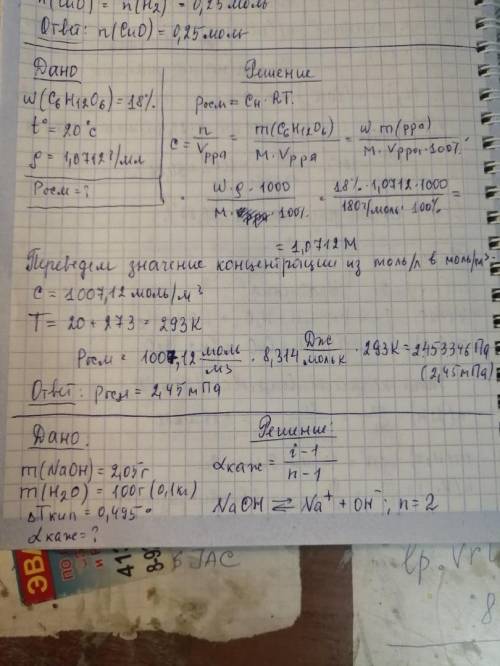 n(CuO) = n(H2) = 0,25 моль
Ответ: n(CuO) = 0,25 моль
Дано
Решение
w(C6H12O6) = 18%
t° = 20°C
ρ = 1,0712 г/мл
Pосм = ?
Pосм = Cн · RT.
C = n / Vрра = m(C6H12O6) / M · Vрра = w · m(рра) / M · Vрра · 100% =
= w · ρ · 1000 / M · 100% = 18% · 1,0712 · 1000 / 180 г/моль · 100% =
= 1,0712 M
Переведем значение концентрации из моль/л в моль/м³.
C = 1007,12 моль/м³
T = 20 + 273 = 293K
Pосм = 1007,12 моль/м3 · 8,314 Дж/моль K · 293K = 2453346 Па
(2,45 мПа)
Ответ: Pосм = 2,45 мПа
Дано:
Решение:
m(NaOH) = 2,05г
m(H2O) = 100г (0,1кг)
ΔTкип = 0,495°
αкаж = ?
αкаж = i - 1 / n - 1
NaOH ⇄ Na⁺ + OH⁻; n = 2
ЭВА
ПО
411
8-9
ТАС
8